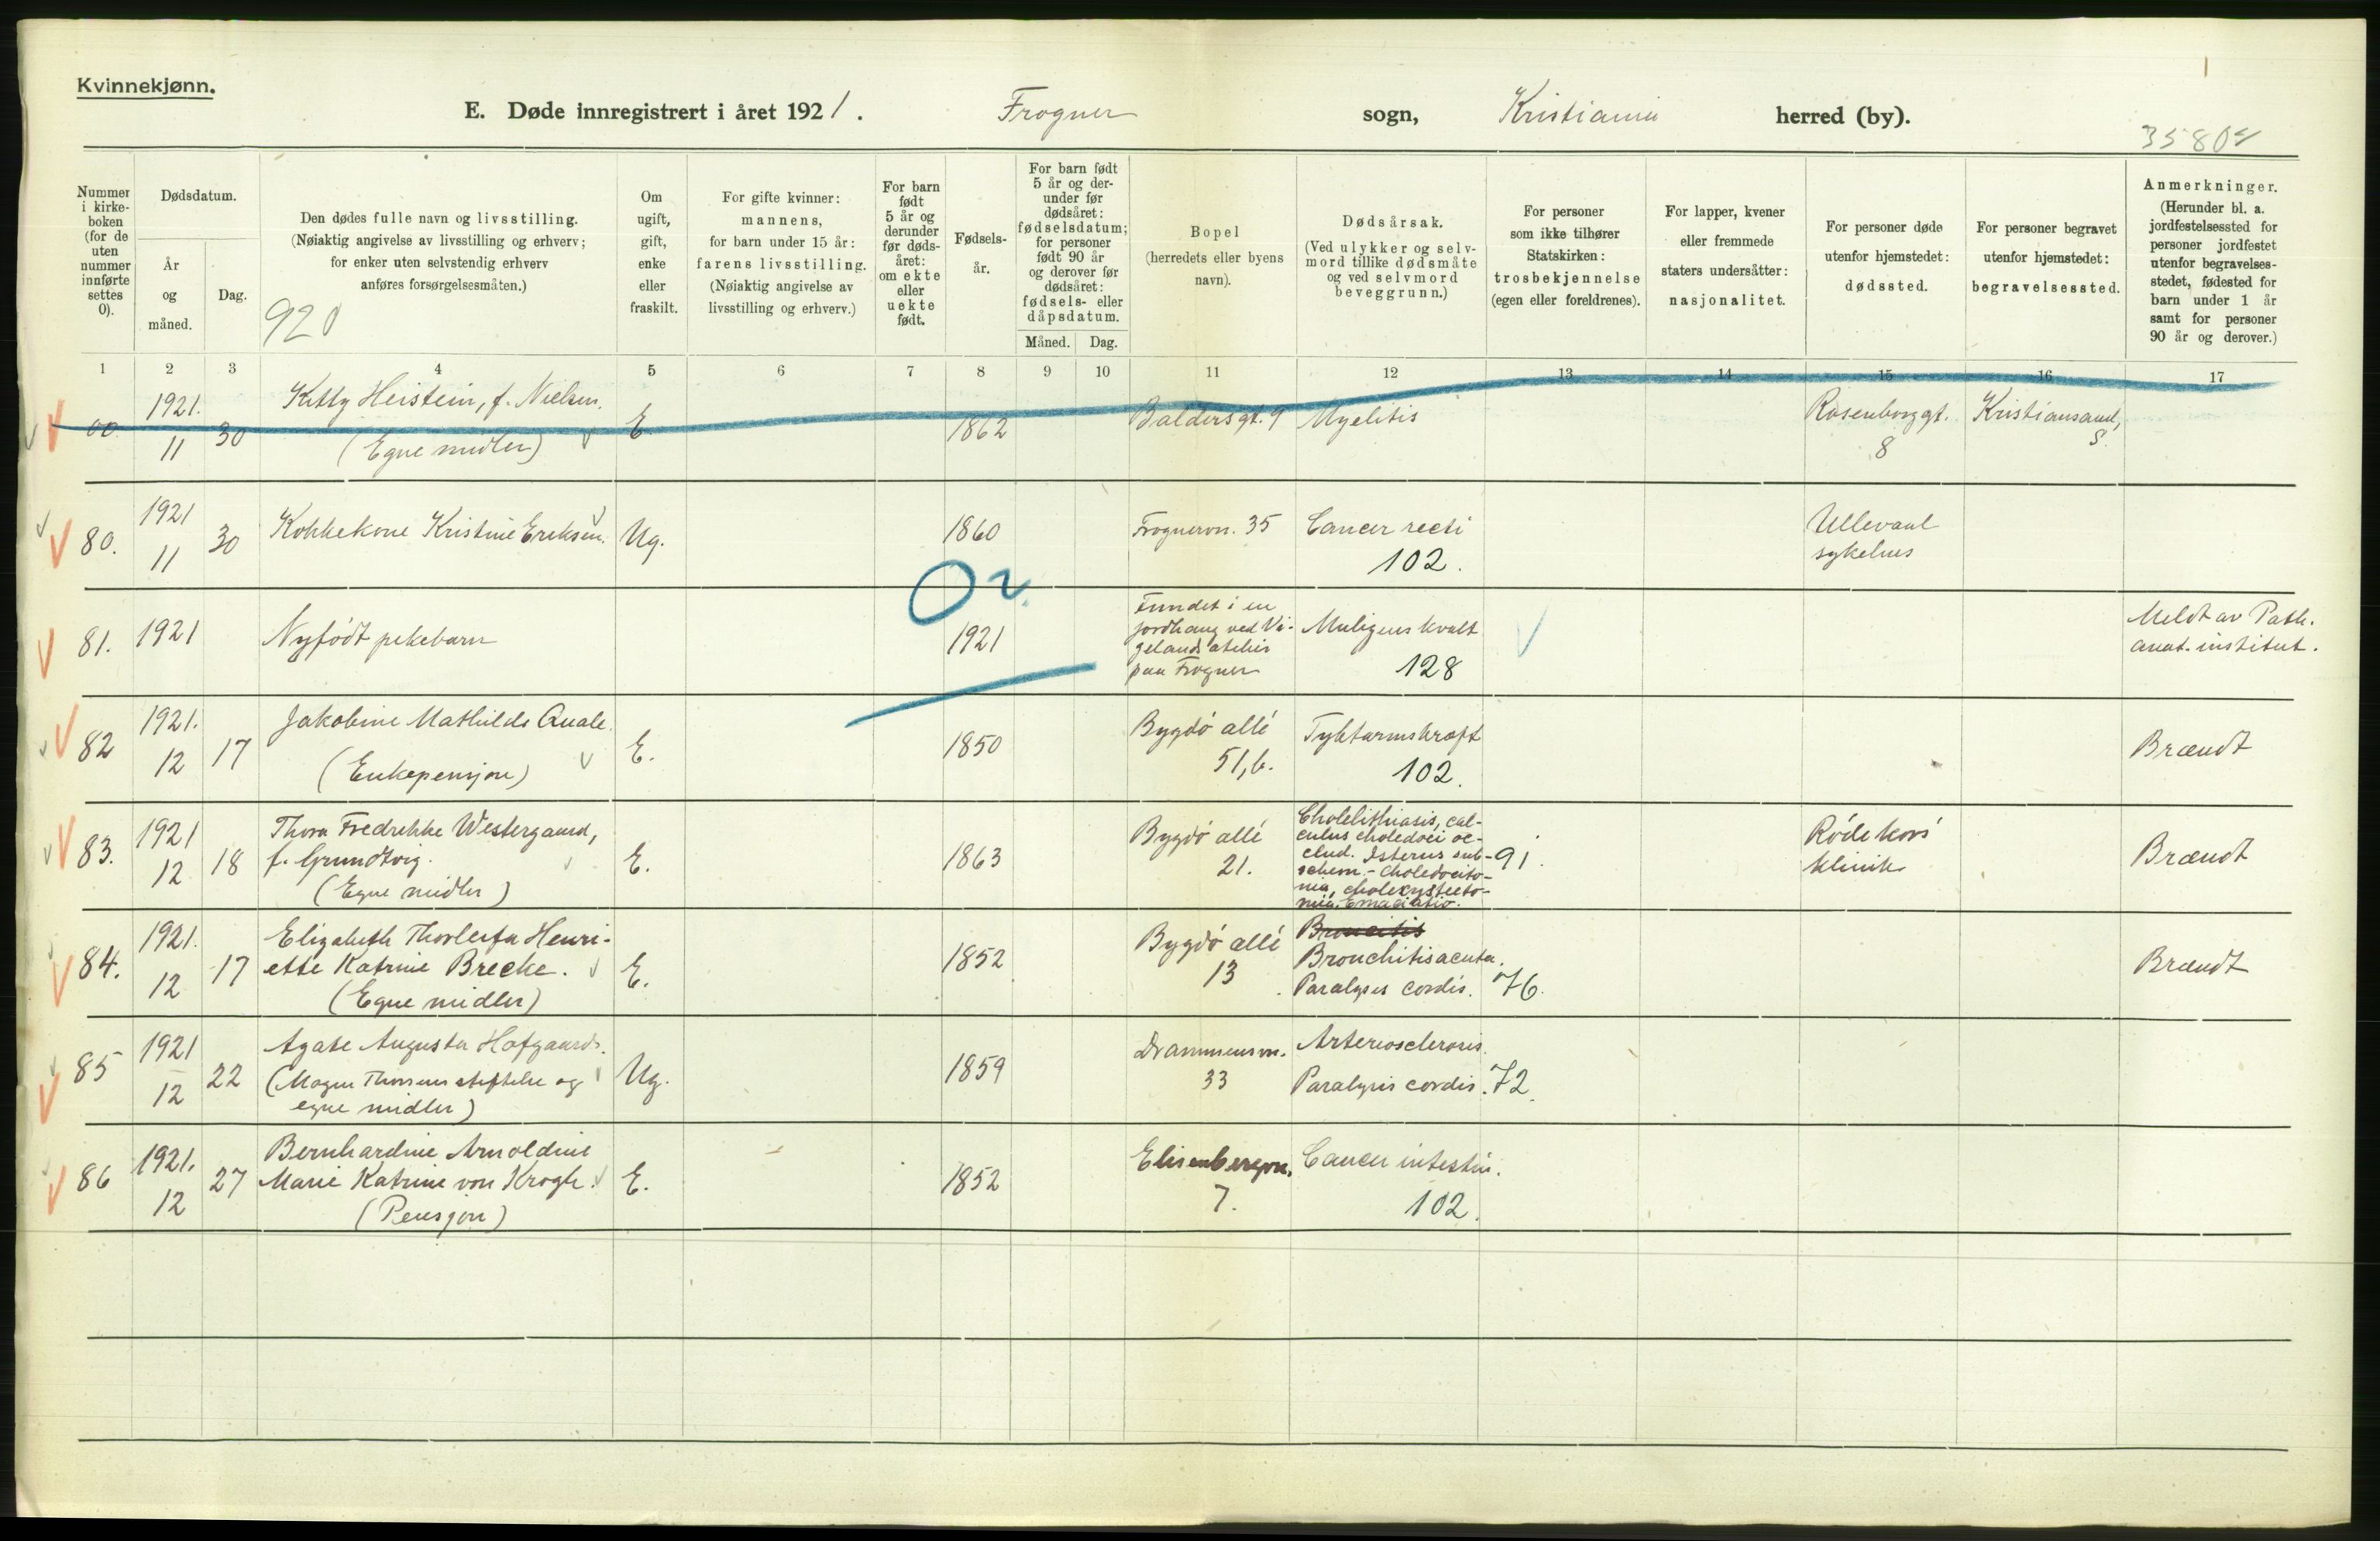 Kvinnekjønn.
E. Døde innregistrert i året 1921. Frogner sogn, Kristiania herred (by).
Nummer i kirke-boken (for de uten nummer innførte settes 0).
Dødsdatum.
År og måned.
Dag.
Den dødes fulle navn og livsstilling.
(Nøiaktig angivelse av livsstilling og erhverv;
for enker uten selvstendig erhverv
anføres forsørgelsesmåten.)
920
Om ugift, gift, enke eller fraskilt.
For gifte kvinner:
mannens,
for barn under 15 år:
farens livsstilling.
(Nøiaktig angivelse av
livsstilling og erhverv.)
For barn født 5 år og derunder før døds-året: om ekte eller uekte født.
Fødsels-år.
For barn født 5 år og der-under før dødsåret: fødselsdatum; for personer født 90 år og derover før dødsåret: fødsels- eller dåpsdatum.
Måned. Dag.
Bopel
(herredets eller byens
navn).
Dødsårsak.
(Ved ulykker og selv-
mord tillike dødsmåte
og ved selvmord
beveggrunn.)
For personer
som ikke tilhører
Statskirken:
trosbekjennelse
(egen eller foreldrenes).
For lapper, kvener
eller fremmede
staters undersåtter:
nasjonalitet.
For personer døde
utenfor hjemstedet:
dødssted.
For personer begravet
utenfor hjemstedet:
begravelsessted.
Anmerkninger.
(Herunder bl. a.
jordfestelsessted for
personer jordfestet
utenfor begravelses-
stedet, fødested for
barn under 1 år
samt for personer
90 år og derover.)
1 2 3 4 5 6 7 8 9 10 11 12 13 14 15 16 17
1921. 11 30
Kitty Heistein, f. Nielsen.
(Egne midler)
E 1862 Baldersgt. 9 Myelitis
Rosenborggt. 8
Kristiansand, S.
80. 1921 11 30
Kokkekone Kristine Eriksen.
Ug. 1860 Frognervn. 35
Cancer recti
102.
Ullevaal
sykehus
81. 1921
Nyfødt pikebarn
1921
Fundet i en
jordhaug ved Vi-
gelands atelier
paa Frogner
Muligens kvalt
128
Meldt av Path.
anat. institut.
82 1921. 12 17
Jakobine Mathilde Quale.
(Enkepensjon)
E. 1850
Bygdø allé
51, b.
Tyktarmskræft
102.
Brændt
83. 1921 12 18
Thora Fredrikke Westergaard,
f. Grundtvig.
(Egne midler)
E. 1863
Bygdø allé
21.
Cholelithiasis, cal-
culus choledoci oc-
clud. Isterus
91.
Emaciatio.
Røde kors'
klinik
Brændt
84. 1921. 12 17
Elizabeth Thorleifa Henri-
ette Katrine Brecke.
(Egne midler)
E. 1852
Bygdø allé
13
Bronchitis acuta.
Paralysis cordis. 76.
Brændt
85 1921 12 22
Agate Augusta Hofgaard.
(Mogens Thorsens stiftelse og
egne midler)
Ug. 1859
Drammensvn.
33
Arteriosclerosis.
Paralysis cordis. 72.
86 1921. 12 27
Bernhardine Arnoldine
Marie Katrine von Krogh.
(Pensjon)
E. 1852
Elisenbergvn.
7.
Cancer intestin.
102.